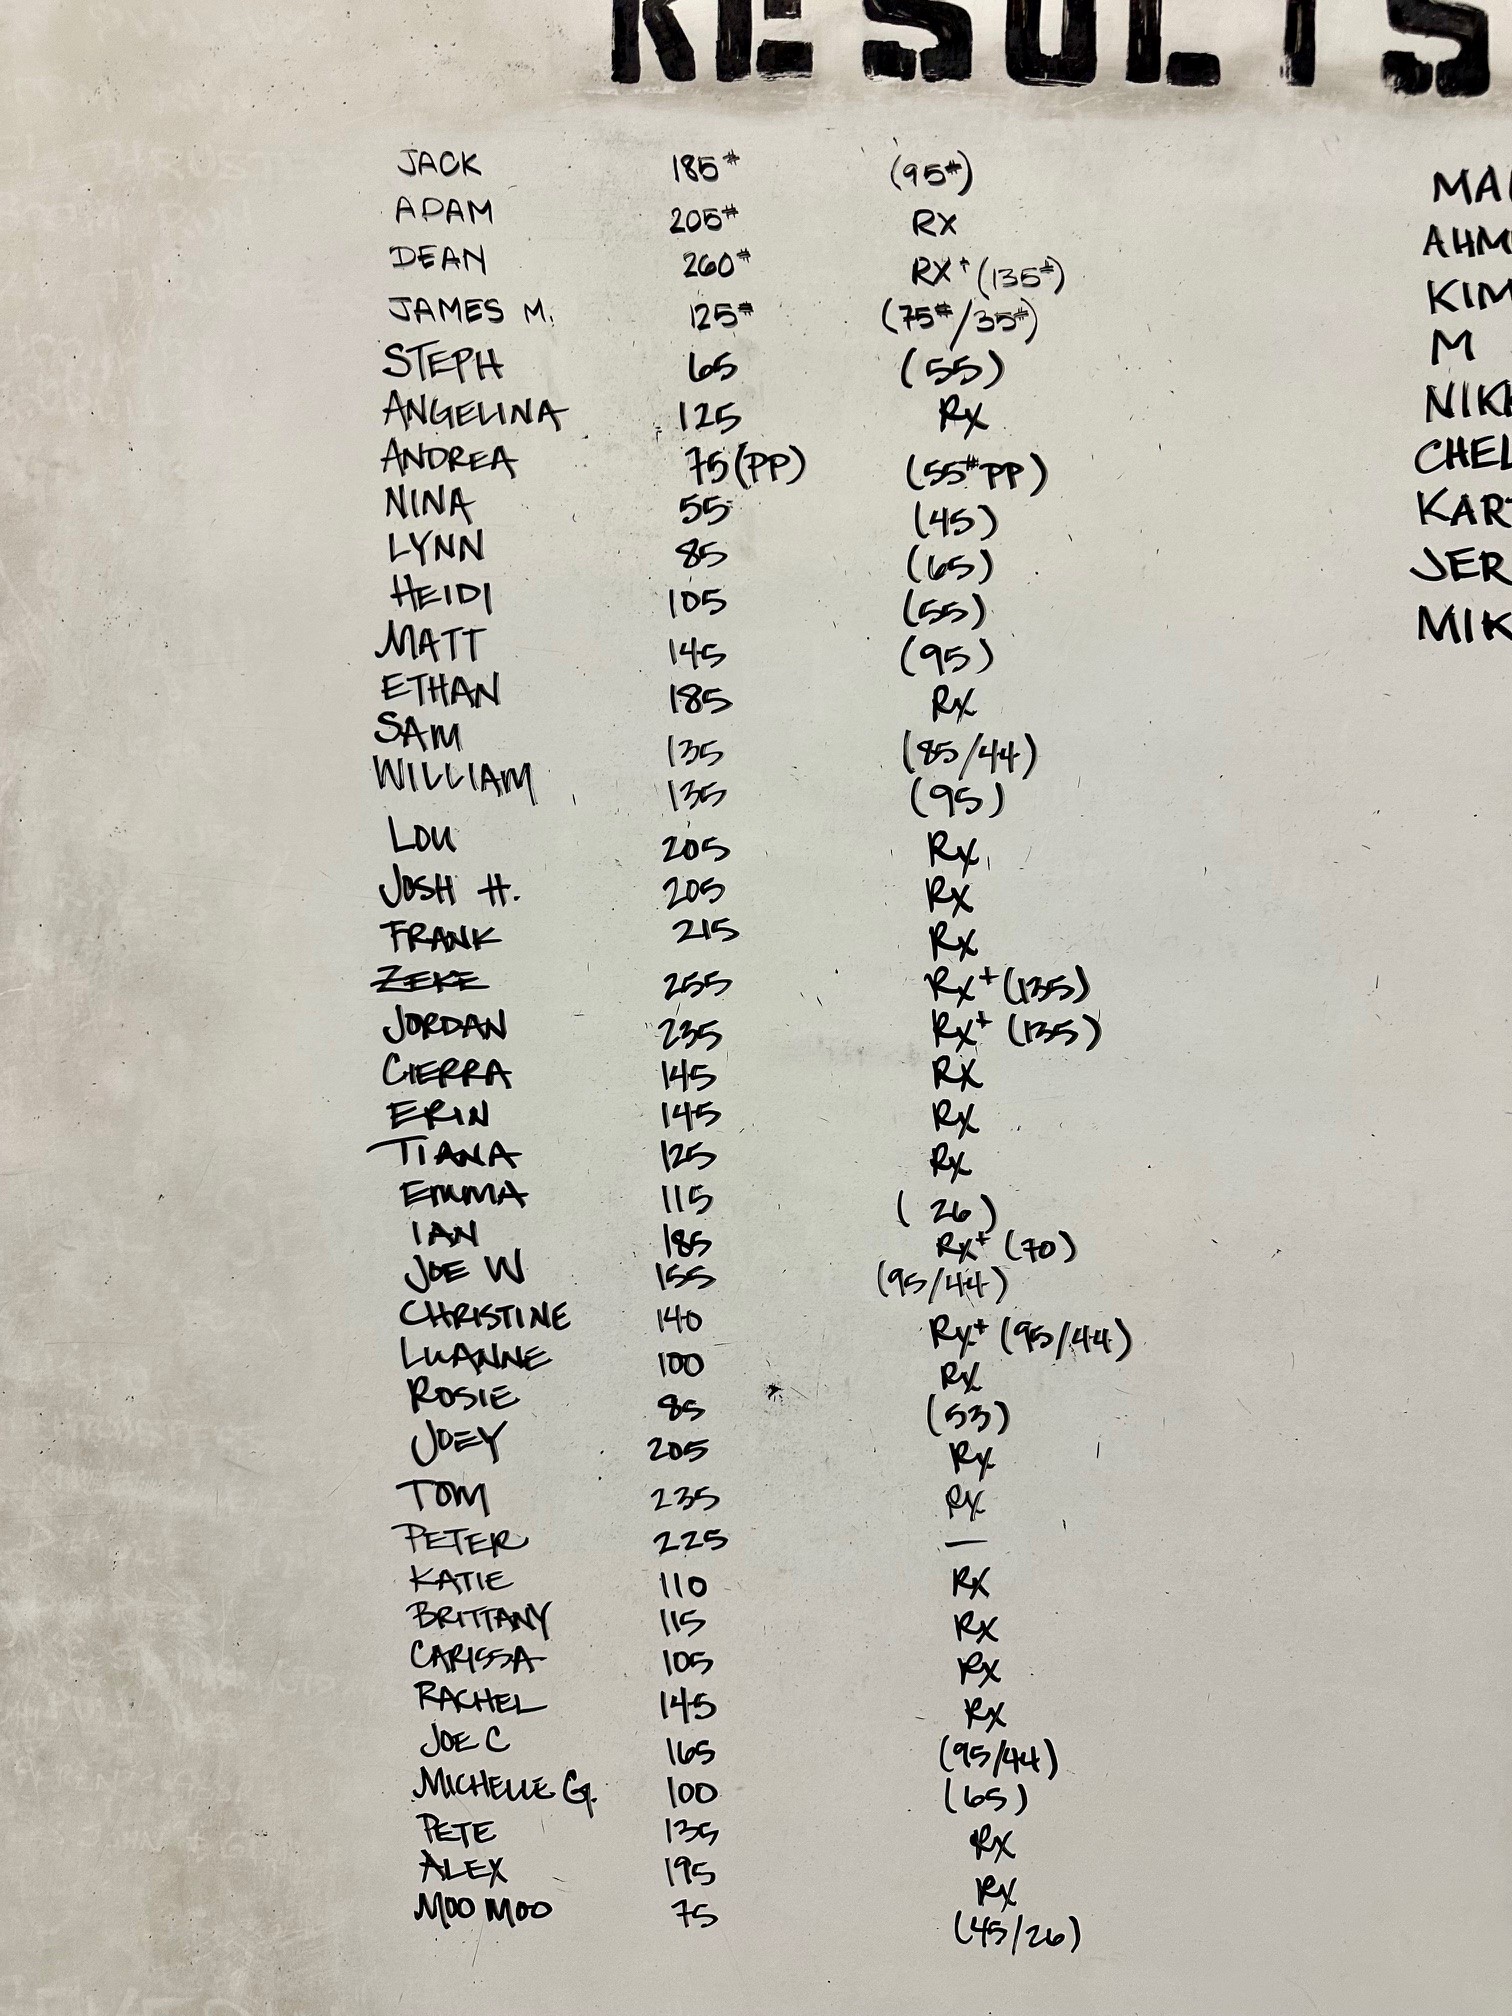 RESULTS
JACK 185# (95#)
ADAM 205# RX
DEAN 260# RX+ (135#)
JAMES M. 125# (75#/35#)
STEPH 65 (55)
ANGELINA 125 Rx
ANDREA 75(PP) (55#PP)
NINA 55 (45)
LYNN 85 (65)
HEIDI 105 (55)
MATT 145 (95)
ETHAN 185 Rx
SAM 135 (85/44)
WILLIAM 135 (95)
LOU 205 Rx
JOSH H. 205 Rx
FRANK 215 Rx
ZEKE 255 Rx+ (135)
JORDAN 235 Rx+ (135)
CIERRA 145 Rx
ERIN 145 Rx
TIANA 125 Rx
EMMA 115 (26)
IAN 185 Rx+ (70)
JOE W 155 (95/44)
CHRISTINE 140 Rx+ (95/44)
LUANNE 100 Rx
ROSIE 85 (53)
JOEY 205 Rx
TOM 235 Rx
PETER 225 —
KATIE 110 Rx
BRITTANY 115 Rx
CARISSA 105 Rx
RACHEL 145 Rx
JOE C 165 (95/44)
MICHELLE G. 100 (65)
PETE 135 Rx
ALEX 195 Rx
MOO MOO 75 (45/26)
MA
AHM
KIM
M
NIK
CHEL
KAR
JER
MIK